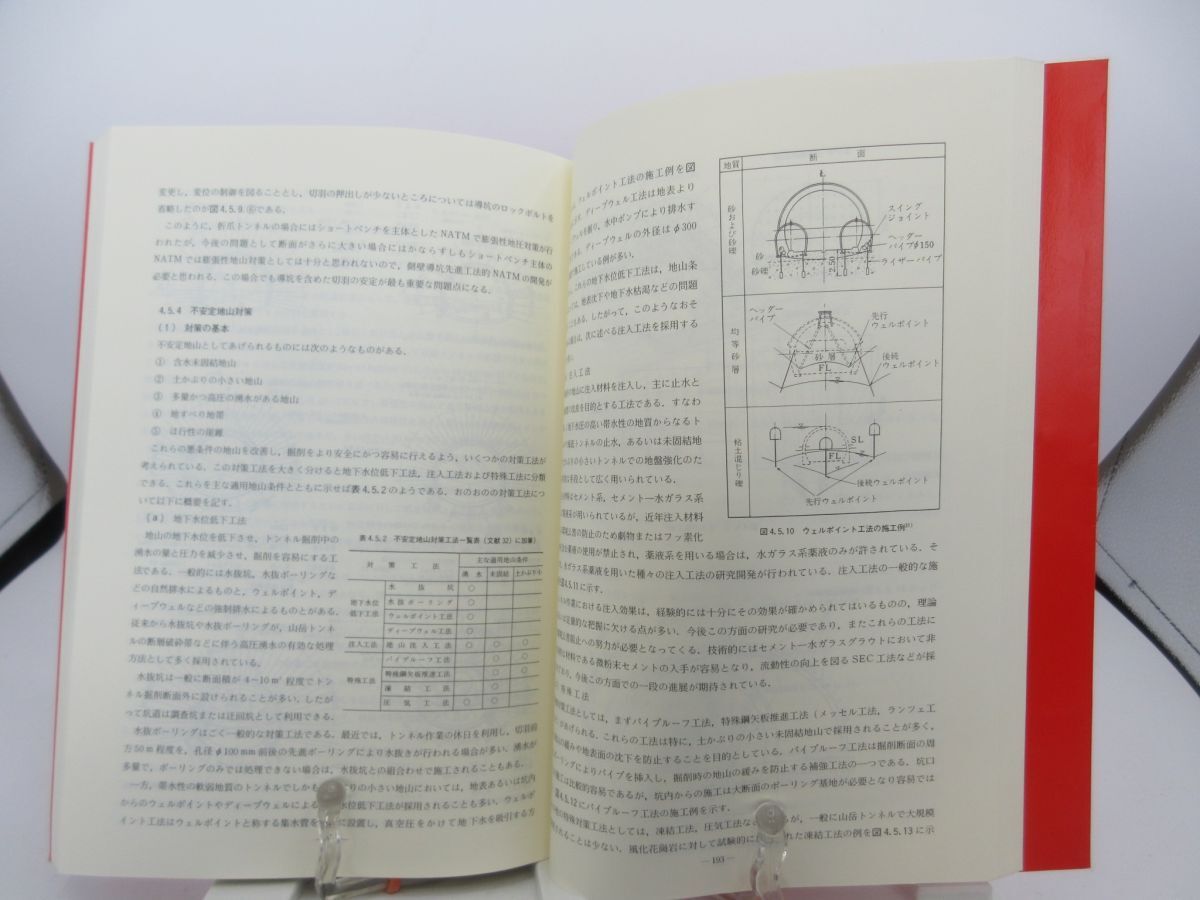 変更し，変位の制御を図ることとし，切羽の押出しが少ないところについては導坑のロックボルトを
省略したのが図4.5.9,⑥である．
このように，折爪トンネルの場合にはショートベンチを主体としたNATMで膨張性地圧対策が行
われたが，今後の問題として断面がさらに大きい場合にはかならずしもショートベンチ主体の
NATMでは膨張性地山対策としては十分と思われないので，側壁導坑先進工法的NATMの開発が
必要と思われる．この場合でも導坑を含めた切羽の安定が最も重要な問題点になる．
4.5.4 不安定地山対策
(1) 対策の基本
不安定地山としてあげられるものには次のようなものがある．
① 含水未固結地山
② 土かぶりの小さい地山
③ 多量かつ高圧の湧水がある地山
④ 地すべり地帯
⑤ は行性の崖錐
これらの悪条件の地山を改善し，掘削をより安全にかつ容易に行えるよう，いくつかの対策工法が
考えられている．この対策工法を大きく分けると地下水位低下工法，注入工法および特殊工法に分類
できる．これらを主な適用地山条件とともに示せば表4.5.2のようである．おのおのの対策工法につ
いて以下に概要を記す．
(a) 地下水位低下工法
地山の地下水位を低下させ，トンネル掘削中の
湧水の量と圧力を減少させ，掘削を容易にする工
法である．一般的には水抜坑，水抜ボーリングな
どの自然排水によるものと，ウェルポイント，デ
ィープウェルなどの強制排水によるものとがある．
従来から水抜坑や水抜ボーリングが，山岳トンネ
ルの断層破砕帯などに伴う高圧湧水の有効な処理
方法として多く採用されている．
水抜坑は一般に断面積が4〜10m²程度でトン
ネル掘削断面外に設けられることが多い．したが
って坑道は調査坑または迂回坑として利用できる．
水抜ボーリングはごく一般的な対策工法である．最近では，トンネル作業の休日を利用し，切羽前
方50m程度を，孔径φ100mm前後の先進ボーリングにより水抜きが行われる場合が多い．湧水が
多量で，ボーリングのみでは処理できない場合は，水抜坑との組合わせで施工されることもある．
一方，帯水性の軟弱地質のトンネルでしかも りの小さい地山においては，地表あるいは坑内
からのウェルポイントやディープウェルによる 水位低下工法が採用されることも多い．ウェルポ
イント工法はウェルポイントと称する集水管を に設置し，真空圧をかけて地下水を吸引する方
表4.5.2 不安定地山対策工法一覧表（文献32）に加筆）
対策工法 主な適用地山条件
湧水 未固結 土かぶり小
地下水位低下工法
水抜坑 ○
水抜ボーリング ○
ウェルポイント工法 ○
ディープウェル工法 ○
注入工法 地山注入工法 ○ ○ ○
特殊工法
パイプルーフ工法 ○ ○
特殊鋼矢板推進工法 ○ ○
凍結工法 ○
圧気工法 ○ ○
ェルポイント工法の施工例を図
ディープウェル工法は地表より
ウェルを掘り，水中ポンプにより排水す
ディープウェルの外径はφ300
施工している例が多い．
これらの地下水位低下工法は，地山条
ては，地表沈下や地下水枯渇などの問題
ともある．したがって，このようなおそ
合は，次に述べる注入工法を採用する
注入工法
の地山に注入材料を注入し，主に止水と
の改良を目的とする工法である．すなわ
地下水圧の高い帯水性の地質からなるト
トンネルの止水，あるいは未固結地
りの小さいトンネルでの地盤強化のた
手段として広く用いられている．
はセメント系，セメント－水ガラス系
液系が用いられているが，近年注入材料
公害の防止のため劇物またはフッ素化
む薬液の使用が禁止され，薬液系を用いる場合は，水ガラス系薬液のみが許されている．そ
水ガラス系薬液を用いた種々の注入工法の研究開発が行われている．注入工法の一般的な施
4.5.11に示す．
ル作業における注入効果は，経験的には十分にその効果が確かめられてはいるものの，理論
は定量的な把握に欠ける点が多い．今後この方面の研究が必要であり，またこれらの工法に
害防止への努力が必要となってくる．技術的にはセメント－水ガラスグラウトにおいて非
材料である微粉末セメントの入手が容易となり，流動性の向上を図るSEC工法などが採
り，今後この方面での一段の進展が期待されている．
特殊工法
殊工法としては，まずパイプルーフ工法，特殊鋼矢板推進工法（メッセル工法，ランフェ工
があげられる．これらの工法は特に，土かぶりの小さい未固結地山で採用されることが多く，
の緩みや地表面の沈下を防止することを目的としている．パイプルーフ工法は掘削断面の周
ーリングによりパイプを挿入し，掘削時の地山の緩みを防止する補強工法の一つである．坑口
施工は比較的容易であるが，坑内からの施工は大断面のボーリング基地が必要となり容易では
図4.5.12にパイプルーフ工法の施工例を示す．
の特殊対策工法としては，凍結工法，圧気工法など が，一般に山岳トンネルで大規模
されることは少ない．風化花崗岩に対して試験的に れた凍結工法の例を図4.5.13に示
地質 断面
砂および砂礫
スイングジョイント
ヘッダーパイプφ150
ライザーパイプ
砂
砂礫
均等砂層
ヘッダーパイプ
先行ウェルポイント
後続ウェルポイント
砂層
FL
粘土混じり礫
SL
FL
後続ウェルポイント
先行ウェルポイント
図4.5.10 ウェルポイント工法の施工例³¹⁾
— 193 —